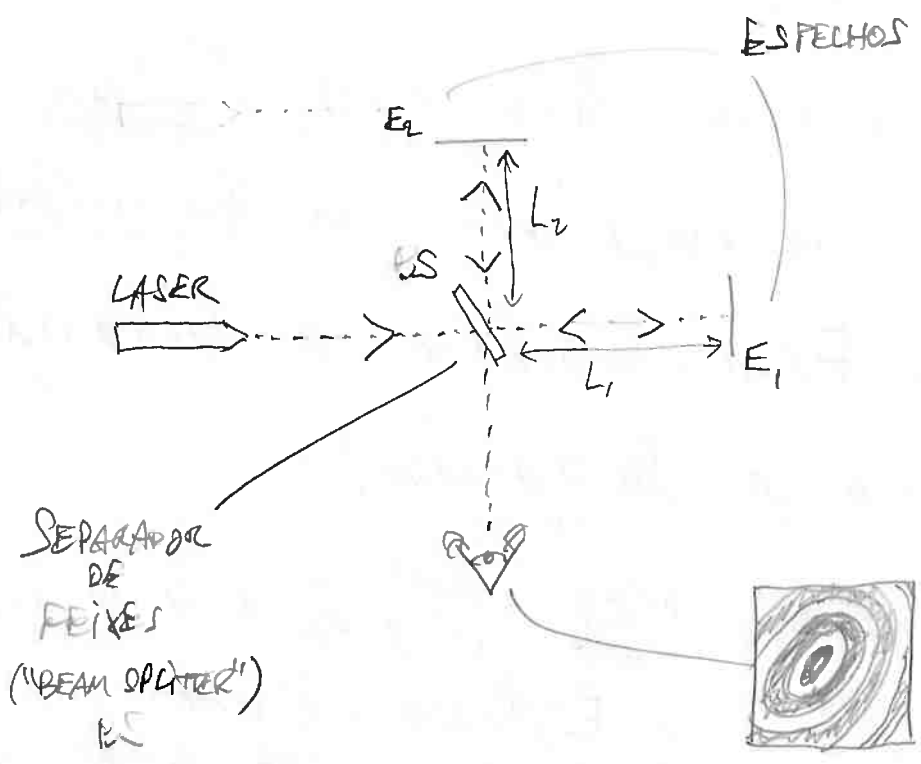 ESPELHOS
E2
L2
LASER
L1
E1
SEPARADOR
DE
FEIXES
("BEAM SPLITTER")